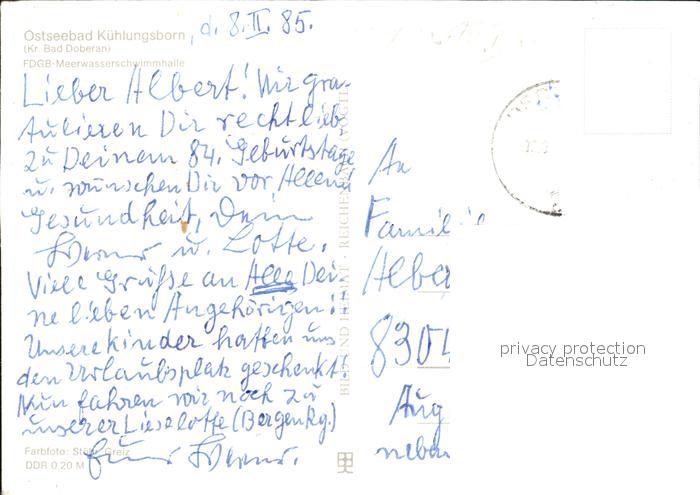 Ostseebad Kühlungsborn, d. 8.II.85.
(Kr. Bad Doberan)
FDGB-Meerwasserschwimmhalle
Lieber Albert! Wir gra-
tulieren Dir recht lieb
zu Deinem 84. Geburtstage
u. wünschen Dir vor Allem
Gesundheit, Dein
Werner u. Lotte.
Viele Grüße an Alle Dei-
ne lieben Angehörigen!
Unsere kinder hatten uns
den Urlaubsplatz geschenkt!
Nun fahren wir noch zu
unserer Lieselotte (Bergen Rg.)
Euer Werner.
Farbfoto: Greiz
DDR 0.20 M
BILD UND HEIMAT · REICHENBACH (VOGTL
An
Famil
Albe
8304
Aug
neben
privacy protection
Datenschutz